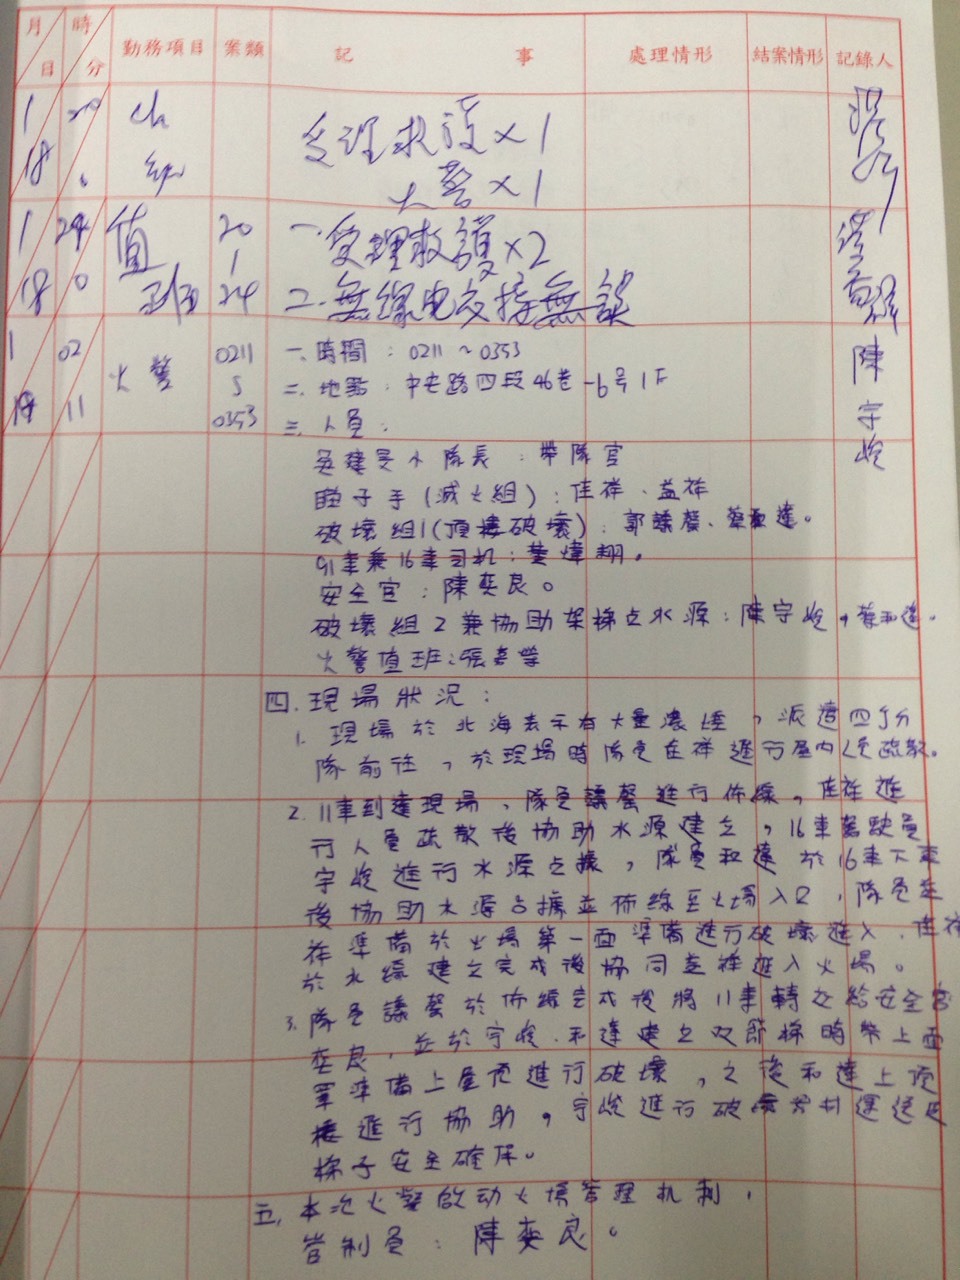 月 日 時 分 勤務項目 案類 記 事 處理情形 結案情形 記錄人
1 18 20 0 受理救護×1
火警×1
1 18 24 0 值班 20 1 24 一、受理救護×2
二、無線電交接無誤
1 19 02 11 火警 0211 0353 一、時間：0211～0353 陳宇
二、地點：中央路四段46巷-6号1F
三、人員：
小隊長：帶隊官
瞄子手(滅火組)：佳祥、益祥
破壞組1(頂樓破壞)：郭議聲、
91車兼16車司机：黃煒翔。
安全官：陳奕良。
破壞組2兼協助架梯占水源：陳宇
火警值班：張
四.現場狀況：
1.現場於北海表示有大量濃煙，派遣四分
隊前往，於現場時隊員佳祥進行屋內人員疏散。
2.11車到達現場，隊員議聲進行佈線，佳祥進
行人員疏散後協助水源建立，16車駕駛員
宇 進行水源占據，隊員和達於16車下車
後協助水源占據並佈線至火場入口，隊員益
祥準備於火場第一面準備進行破壞進入，佳祥
於水線建立完成後協同益祥進入火場。
3.隊員議聲於佈線完成後將11車轉交給安全官
奕良，並於宇 、和達建立双節梯時帶上面
罩準備上屋頂進行破壞，之後和達上頂
樓進行協助，宇 進行破壞器材運送及
梯子安全確保。
五.本次火警啟动火場管理机制，
管制員：陳奕良。